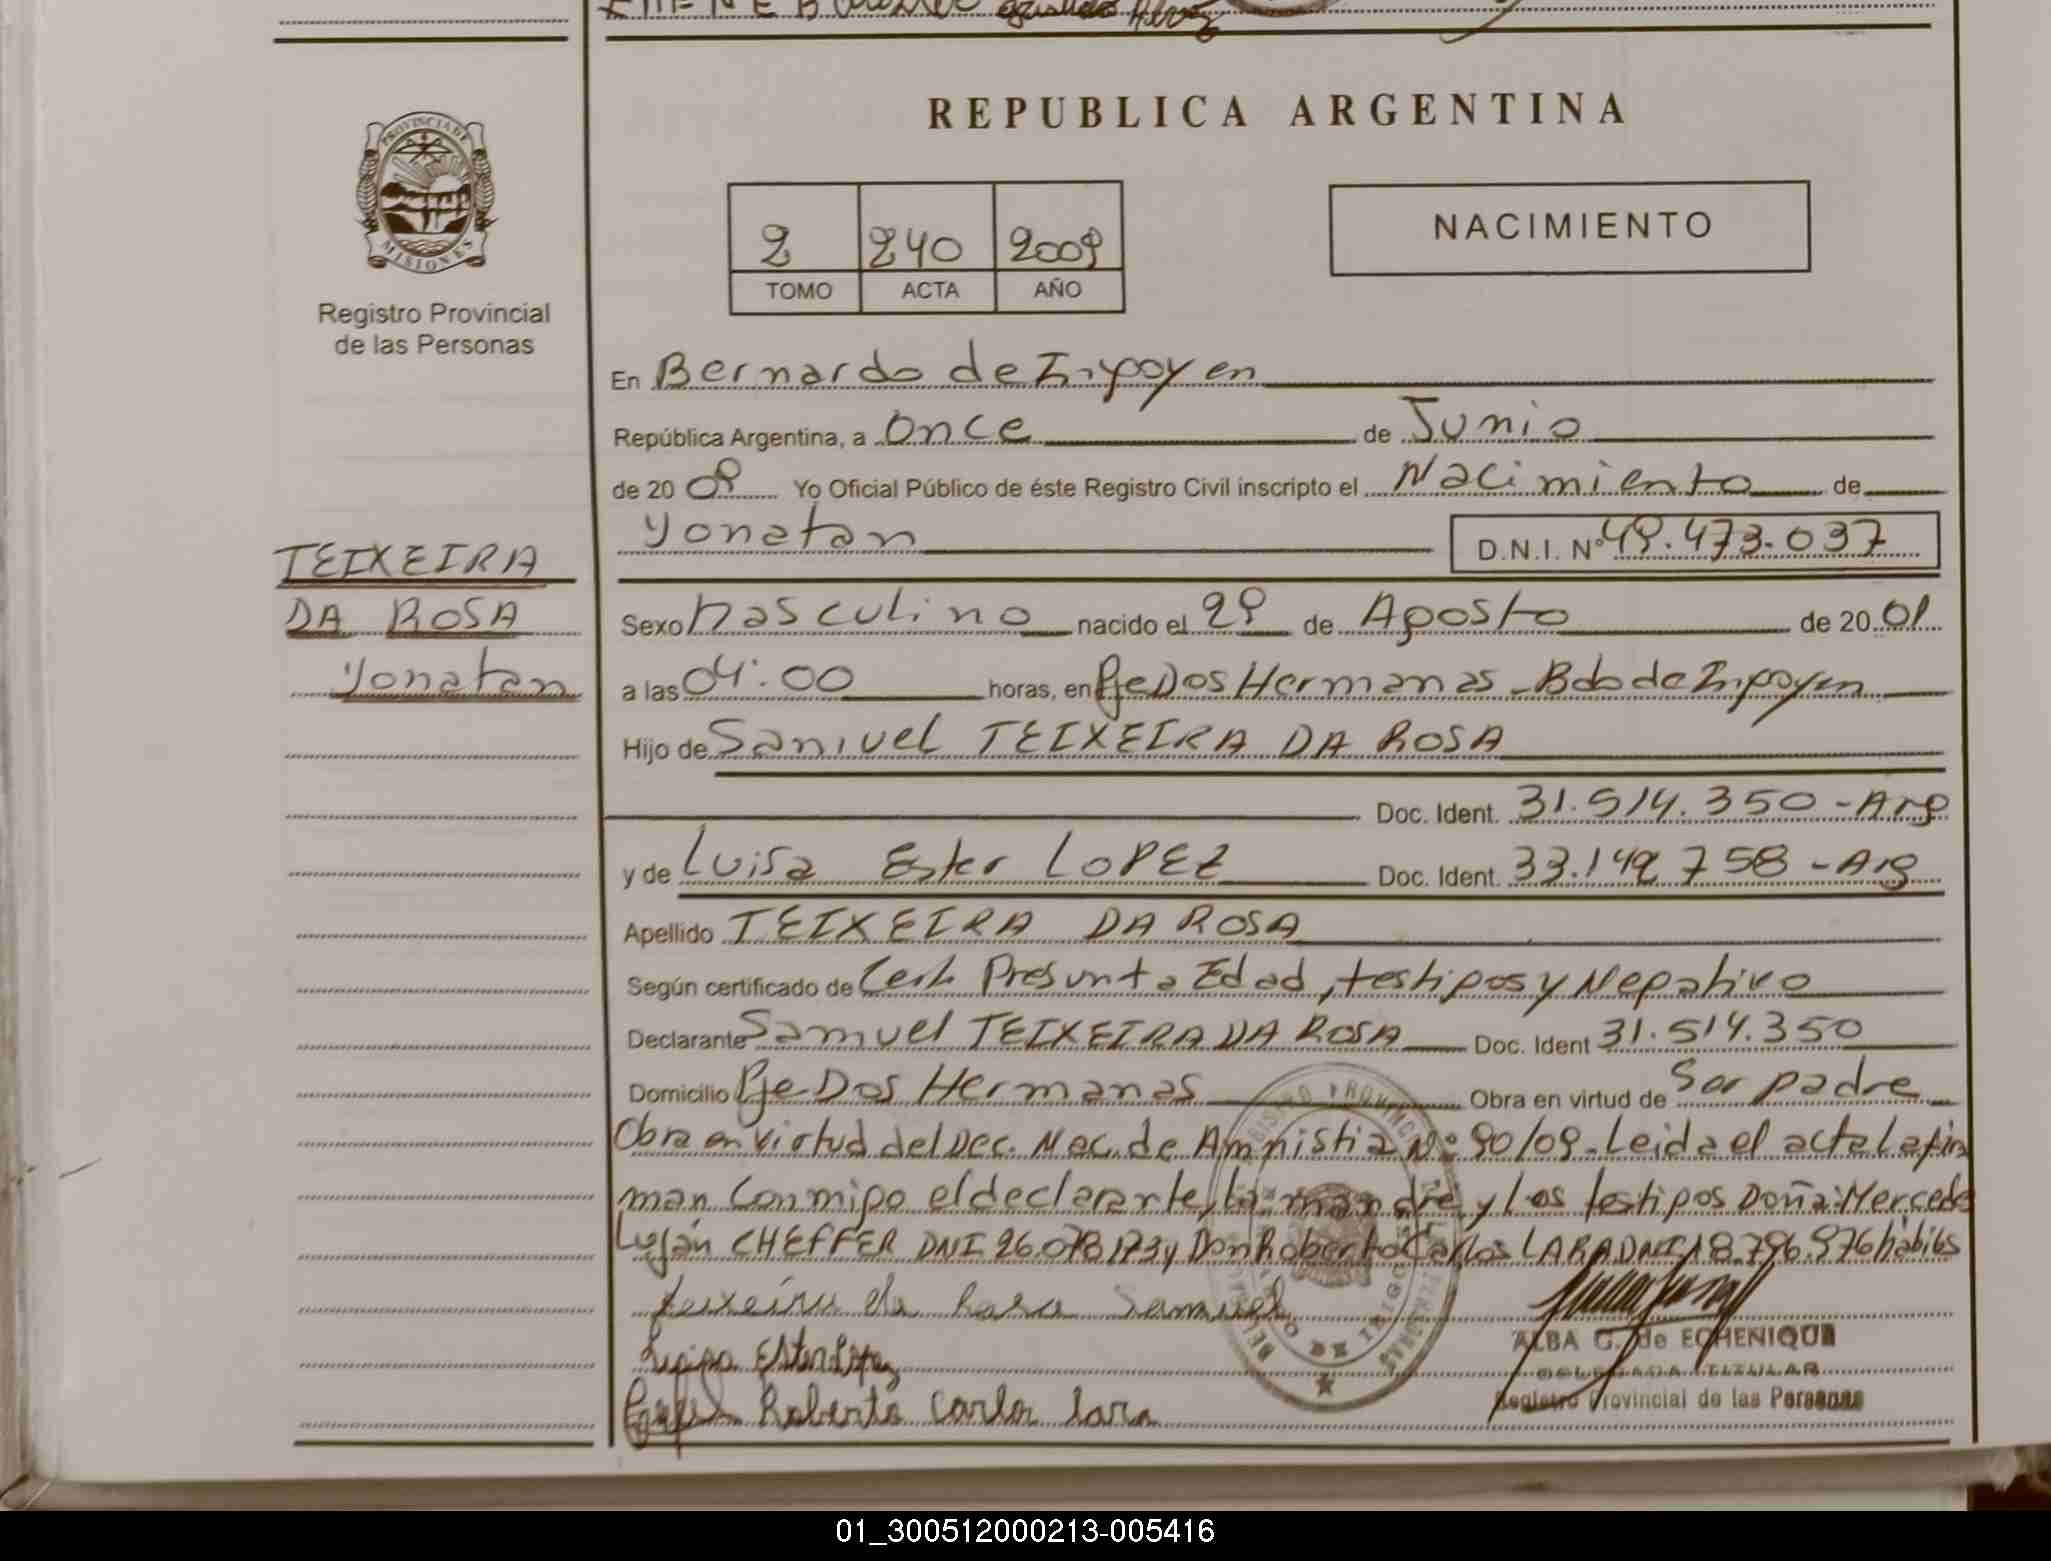 REPUBLICA ARGENTINA
PROVINCIA DE
MISIONES
Registro Provincial
de las Personas
2 240 2009
TOMO ACTA AÑO
NACIMIENTO
En Bernardo de Irigoyen
República Argentina, a Once de Junio
de 20 09 Yo Oficial Público de éste Registro Civil inscripto el Nacimiento de
Yonatan D.N.I. Nº 49.473.037
TEIXEIRA
DA ROSA
Yonatan
Sexo Masculino nacido el 29 de Agosto de 20 01
a las 04:00 horas, en Pje Dos Hermanas - Bdo de Irigoyen
Hijo de Samuel TEIXEIRA DA ROSA
Doc. Ident. 31.514.350 - Arg
y de Luisa Ester LOPEZ Doc. Ident. 33.142 758 - Arg
Apellido TEIXEIRA DA ROSA
Según certificado de Cert. Presunta Edad, testigos y Negativo
Declarante Samuel TEIXEIRA DA ROSA Doc. Ident 31.514.350
Domicilio Pje Dos Hermanas Obra en virtud de Ser padre
Obra en virtud del Dec. Nac. de Amnistia Nº 90/09 - Leida el acta la fir
man conmigo el declarante, la madre y los testigos Doña: Mercedes
Luján CHEFFER DNI 26.078.173 y Don Roberto Carlos LARA DNI 18.796.976 hábiles
Teixeira da Rosa Samuel
Luisa Ester Lopez
Roberto Carlos Lara
ALBA G. de ECHENIQUE
DELEGADA TITULAR
Registro Provincial de las Personas
01_300512000213-005416